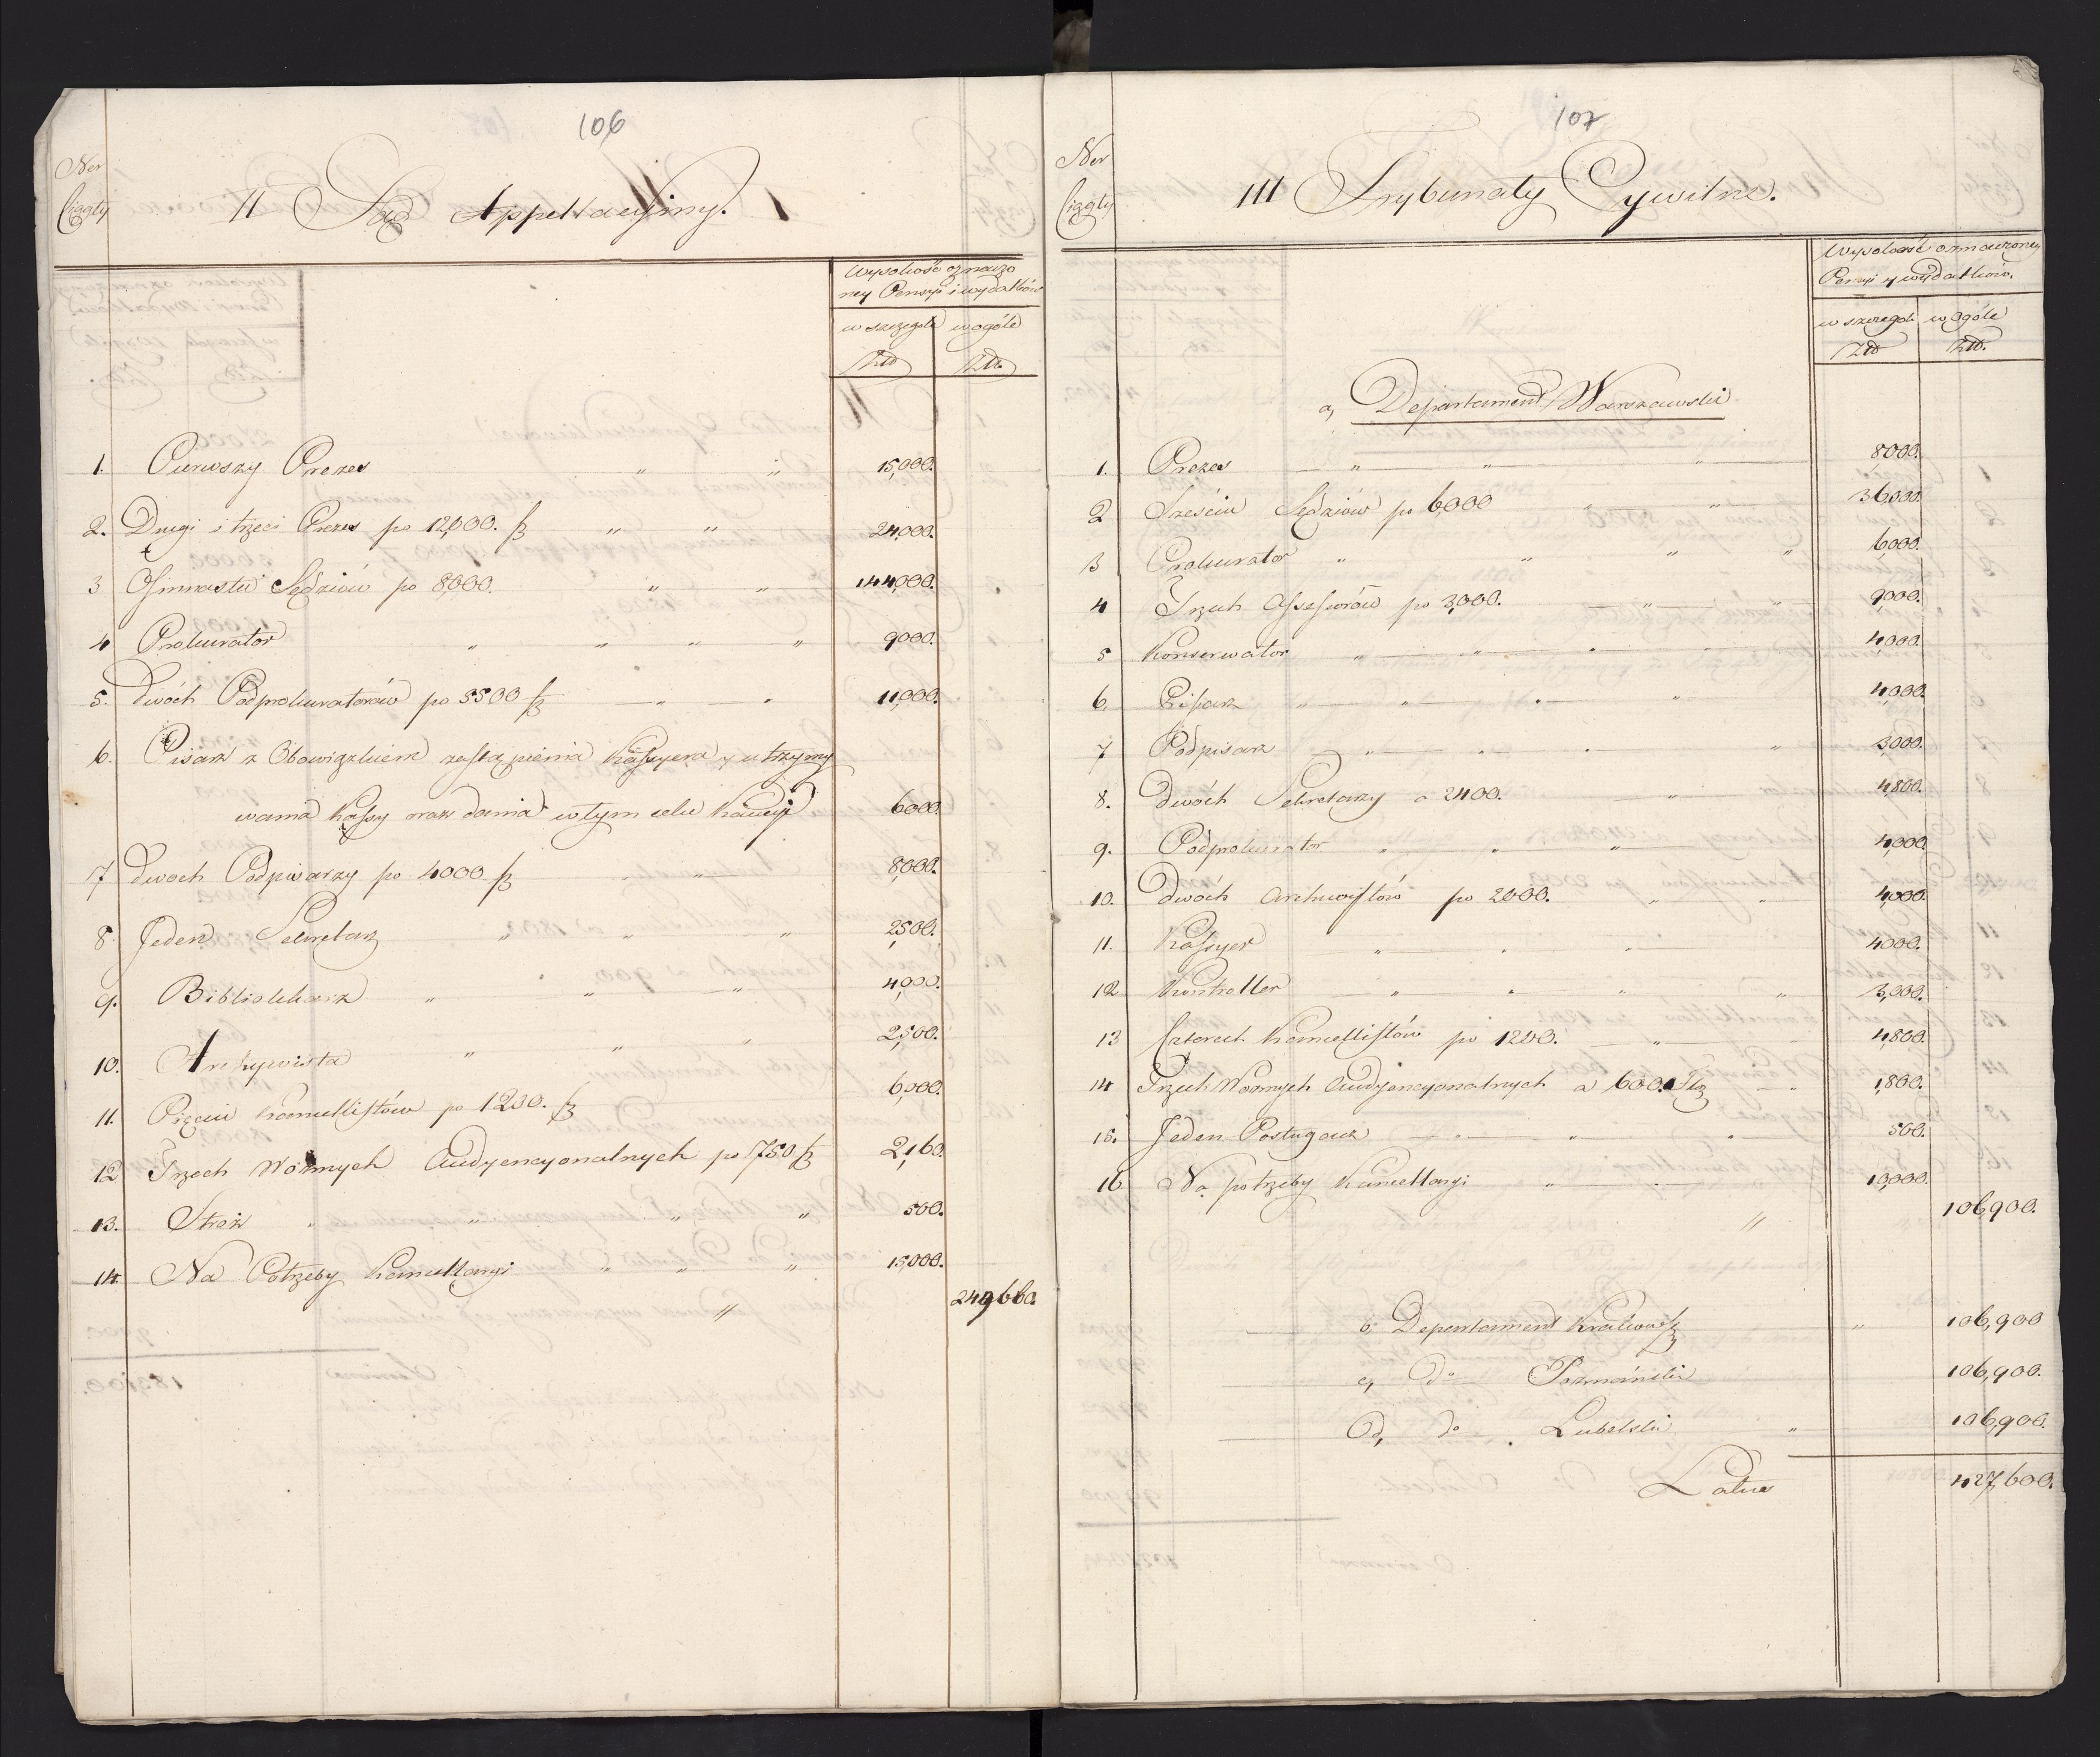 106
Ner
Ciągły
II Sąd Appellacyiny.
Wysokość oznaczo
ney Pensyi i wydatków
w szczególe w ogóle
Złt Złt
1. Pierwszy Prezes " " 15,000.
2. Drugi i trzeci Prezes po 12,000. f " " 24,000.
3 Osmnastu Sędziów po 8,000. " " 144,000.
4 Prokurator " " " " 9000.
5. Dwóch Podprokuratorów po 5500 f " " 11,000.
6. Pisarz z Obowiązkiem zastąpienia Kassyera y utrzymy
wania Kassy oraz dania w tym celu Kaucyi 6000.
7 Dwoch Podpisarzy po 4000 f " " 8,000.
8 Jeden Sekretarz " " " 2,500.
9. Bibliotekarz " " " 4,000.
10. Archywista " " " 2,500.
11. Pięciu Kancellistów po 1200. f 6,000.
12 Trzech Woźnych Audyencyonalnych po 750 f 2,160.
13. Stroż " " " " 500.
14. Na Potrzeby Kancellaryi " " " 15,000.
" 249,660.
107
Ner
Ciągły
III Trybunały Cywilne.
Wysokość oznaczoney
Pensyi y wydatków.
w szczegól. w Ogóle
Złt Złt.
a, Departament Warszawski
1. Prezes " " " 8,000.
2 Sześciu Sędziów po 6,000 " " 36,000.
3 Prokurator " " " " 6,000.
4 Trzech Assessorów po 3,000. " " 9,000.
5 Konserwator " " " " 4,000.
6. Pisarz " " " " 4,000.
7 Podpisarz " " " " 3,000.
8. Dwóch Sekretarzy a 2400. " 4,800.
9. Podprokurator " " " 4,000
10. Dwóch Archiwistów po 2000. " " 4,000.
11. Kassyer " " " 4000.
12 Kontroller " " " " 3,000.
13 Czterech Kancellistów po 1200. " 4,800.
14 Trzech Woźnych Audyencyonalnych a 600. Zł " 1,800.
15. Jeden Posługacz " " " 500.
16. Na potrzeby Kancellaryi " " 10,000.
" 106,900.
b, Departament Krakowski " 106,900
c, do Poznański 106,900.
d, do Lubelski " 106,900.
Latus 427,600.